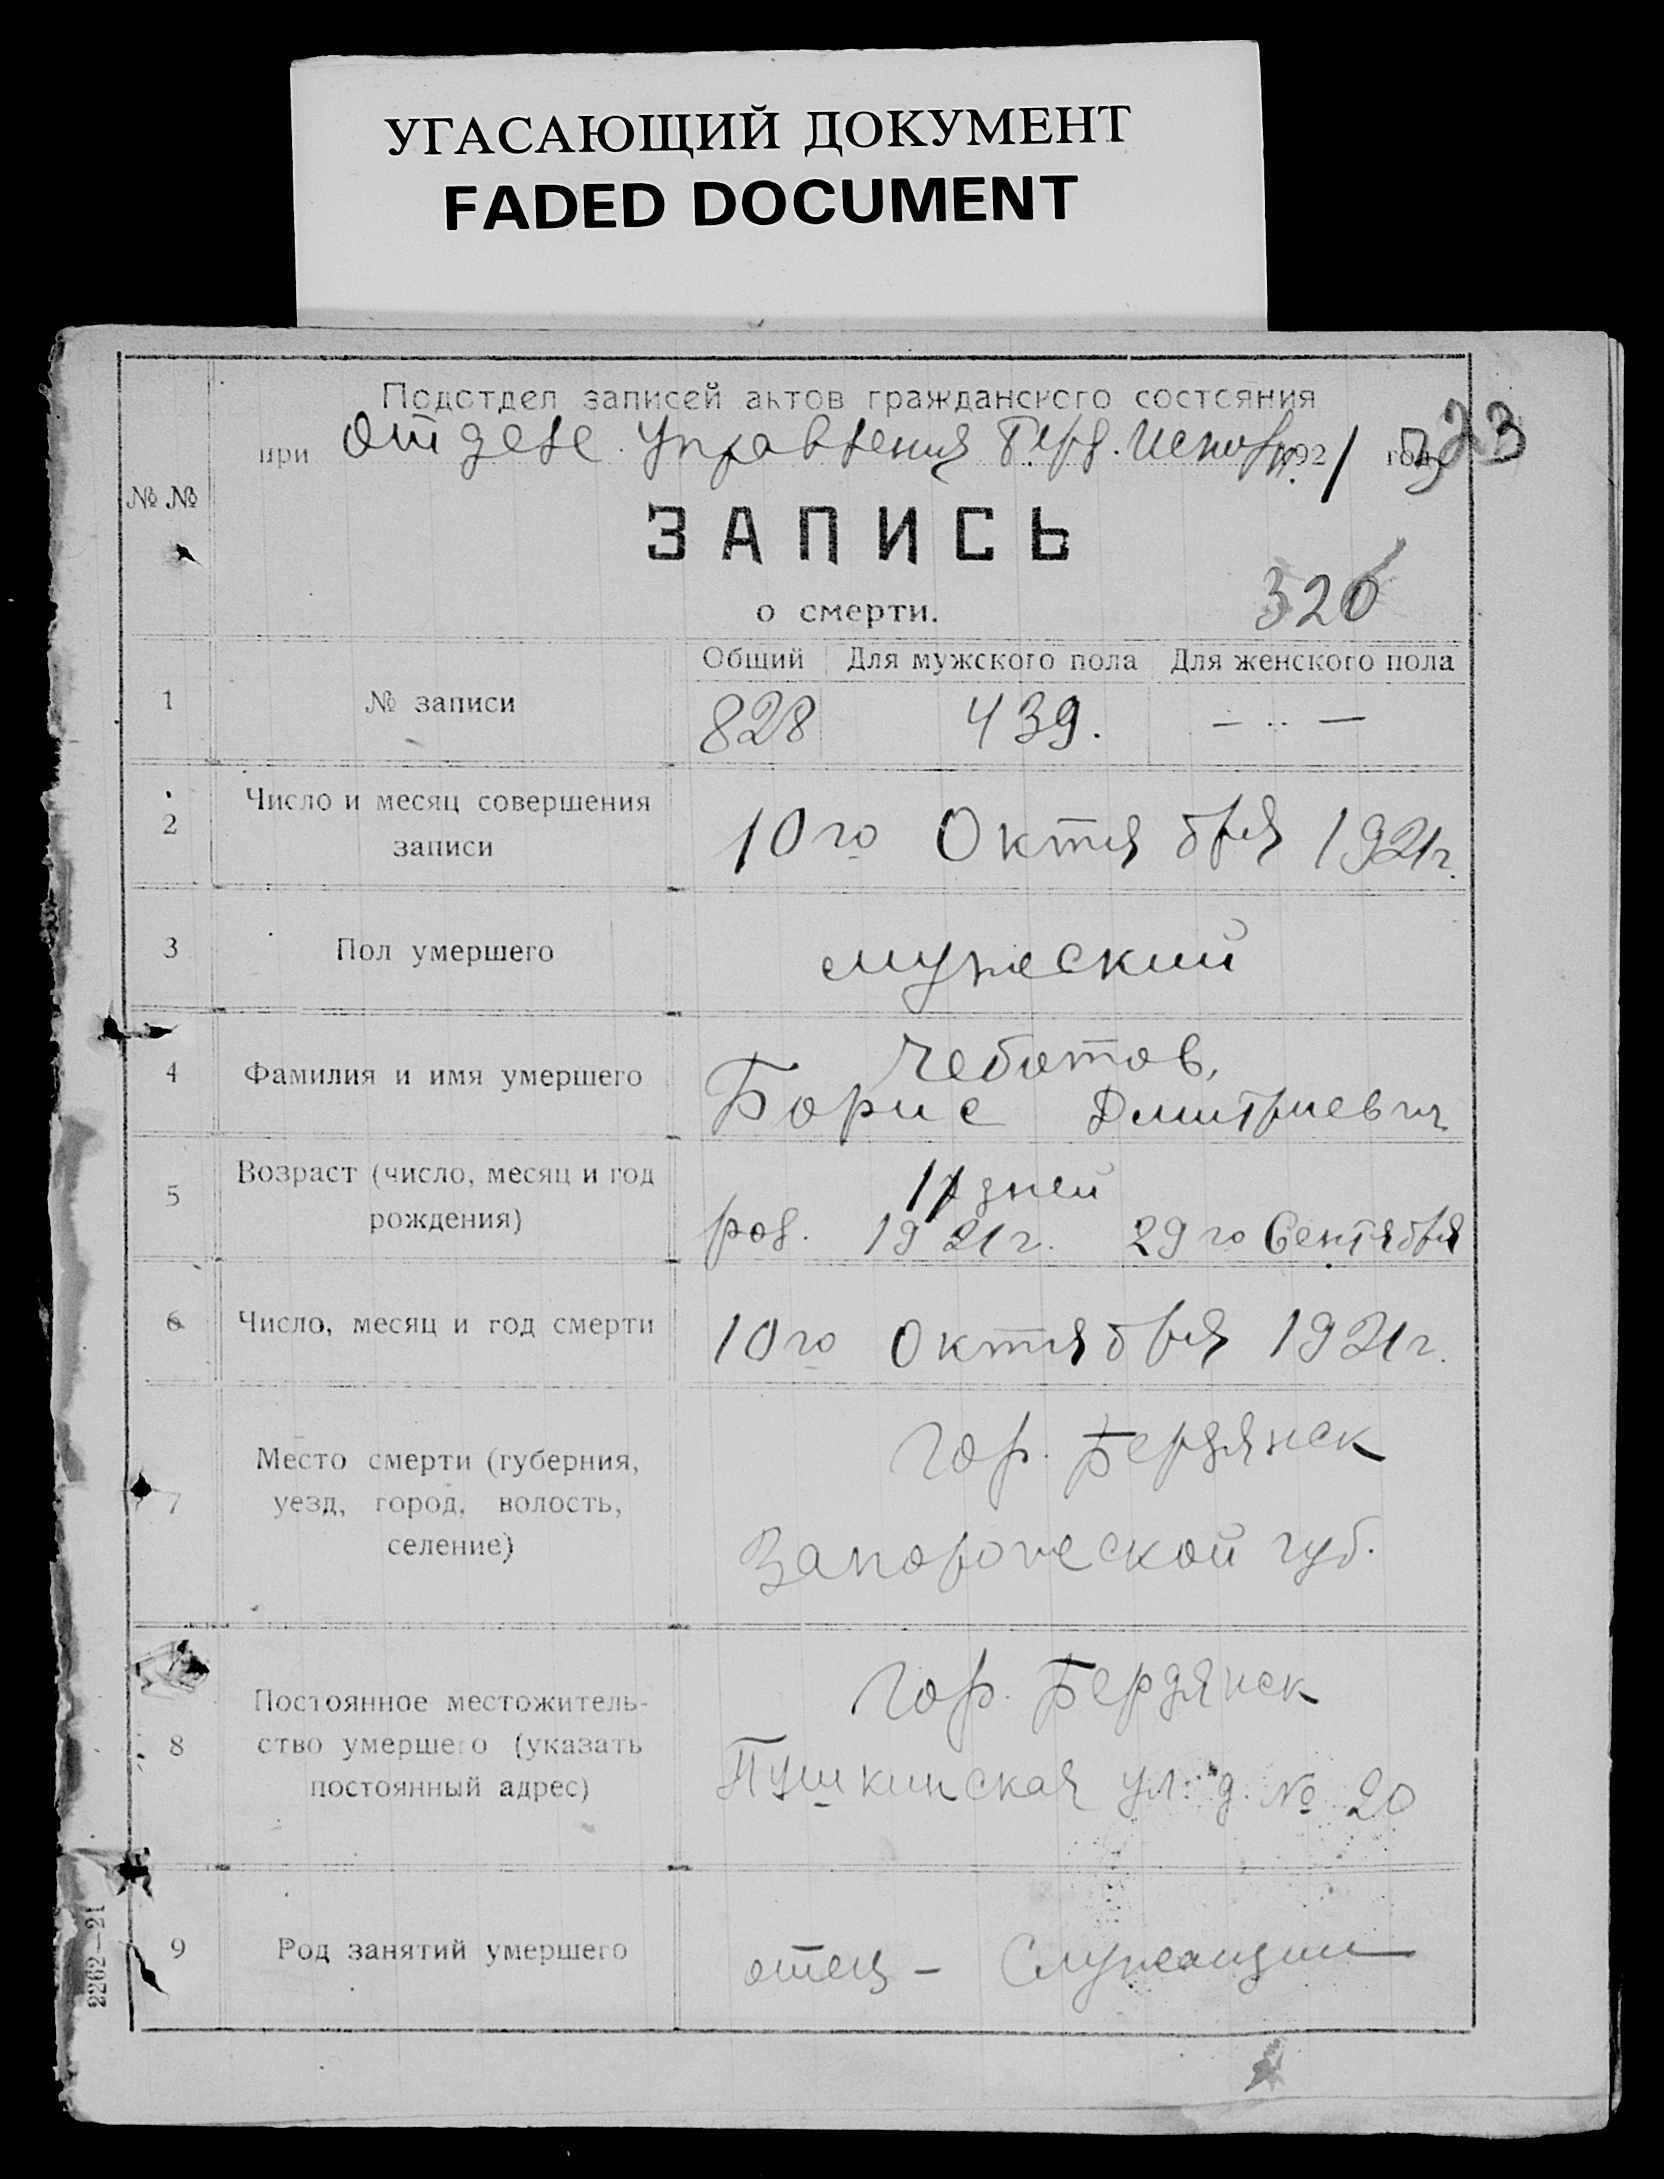 УГАСАЮЩИЙ ДОКУМЕНТ
FADED DOCUMENT
Подотдел записей актов гражданского состояния
при Отделе Управления Берд. Исполк. 1921 года
323
№ №
ЗАПИСЬ
о смерти.
326
Общий Для мужского пола Для женского пола
1 № записи 828 439. — .. —
2 Число и месяц совершения
записи
10го Октября 1921г.
3 Пол умершего мужеский
4 Фамилия и имя умершего
Чеботов,
Борис Дмитриевич
5 Возраст (число, месяц и год
рождения)
дней
род. 1921г. 29го Сентября
6 Число, месяц и год смерти 10го Октября 1921г.
7 Место смерти (губерния,
уезд, город, волость,
селение)
гор. Бердянск
Запорожеской губ.
8 Постоянное местожитель-
ство умершего (указать
постоянный адрес)
гор. Бердянск
Пушкинская ул. д. № 20
9 Род занятий умершего отец – Служащий
2262—21